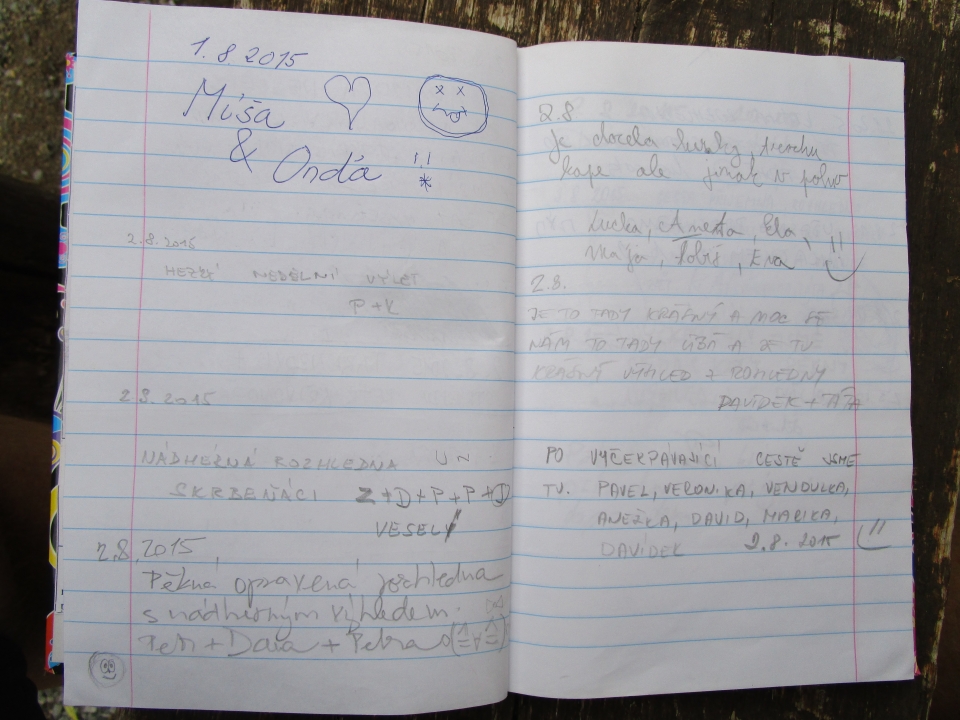 1.8.2015
Míša
& Onďa !!
*
2.8.2015
HEZKÝ NEDĚLNÍ VÝLET
P+K
2.8.2015
NÁDHERNÁ ROZHLEDNA
SKRBEŇÁCI Z+D+P+P+D
VESELÝ
2.8.2015
Pěkná opravená rozhledna
s nádherným výhledem.
Petr + Dáša + Petra
2.8
je docela hezky, trochu
kape ale jinak v pohodě
Lucka, Ela,
Mája, Tobiš, Eva
2.8.
JE TO TADY KRÁSNÝ A MOC SE
NÁM TO TADY LÍBÍ A JE TU
KRÁSNÝ VÝHLED Z ROHLEDNY
DAVÍDEK + TÁTA
PO VYČERPÁVAJÍCÍ CESTĚ JSME
TU. PAVEL, VERONIKA, VENDULKA,
ANEŽKA, DAVID, MARIKA,
DAVÍDEK 2.8.2015